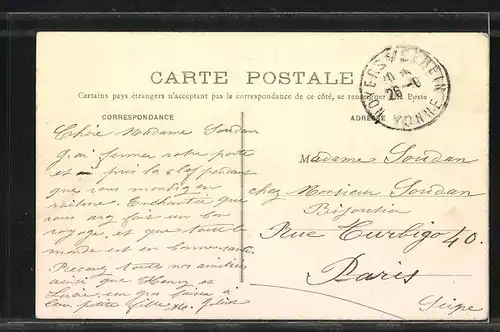 CARTE POSTALE
Certains pays étrangers n'acceptant pas la correspondance de ce côté, se renseigner à la Poste
NOYERS S/ SEREIN
26 - 8
YONNE
CORRESPONDANCE
ADRESSE
Chère Madame Soudan
J'ai fermer votre porte
et pris la clef pendant
que vous montiez en
voiture. Enchantée que
vous ayez fait un bon
voyage, et que toute le
monde est en bonne santé.
Recevez toutes nos amitiés
ainsi que Henry et
Lucie, un gros baiser à
leur petite fille
Madame Soudan
chez Monsieur Soudan
Bijoutier
Rue Turbigo 40.
Paris
Seine